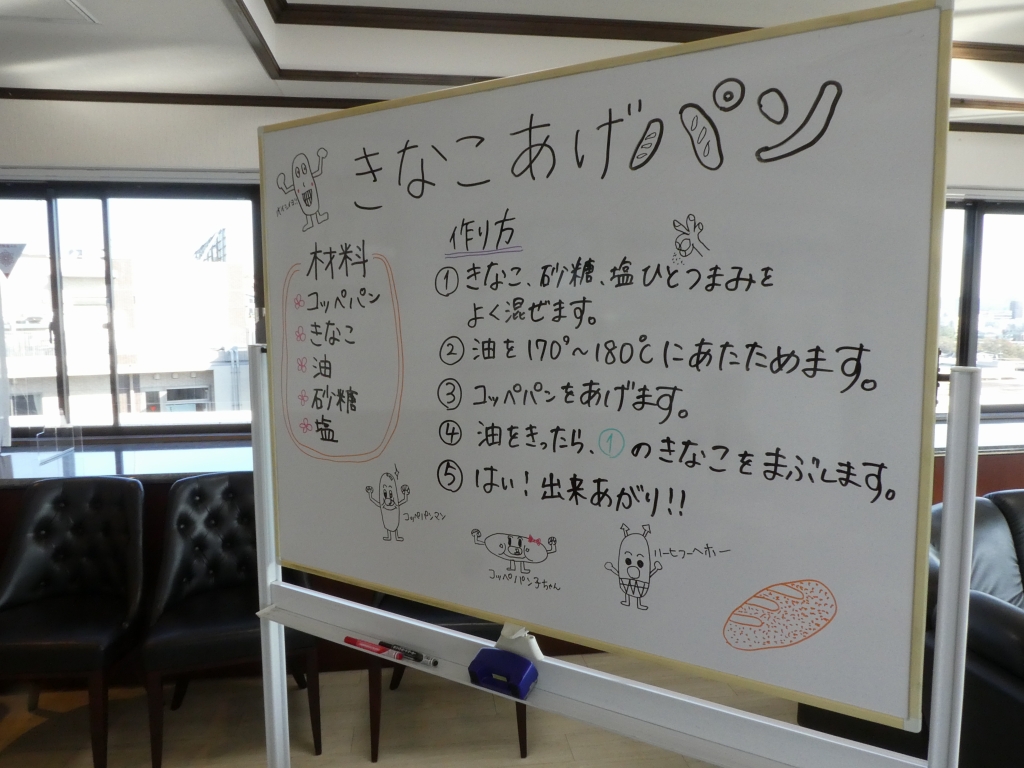 きなこあげパン
材料
コッペパン
きなこ
油
砂糖
塩
作り方
① きなこ、砂糖、塩ひとつまみを
よく混ぜます。
② 油を170°~180℃にあたためます。
③ コッペパンをあげます。
④ 油をきったら、①のきなこをまぶします。
⑤ はい!出来あがり!!
コッペパンマン
コッペパン子ちゃん
ハーヒフーヘホー